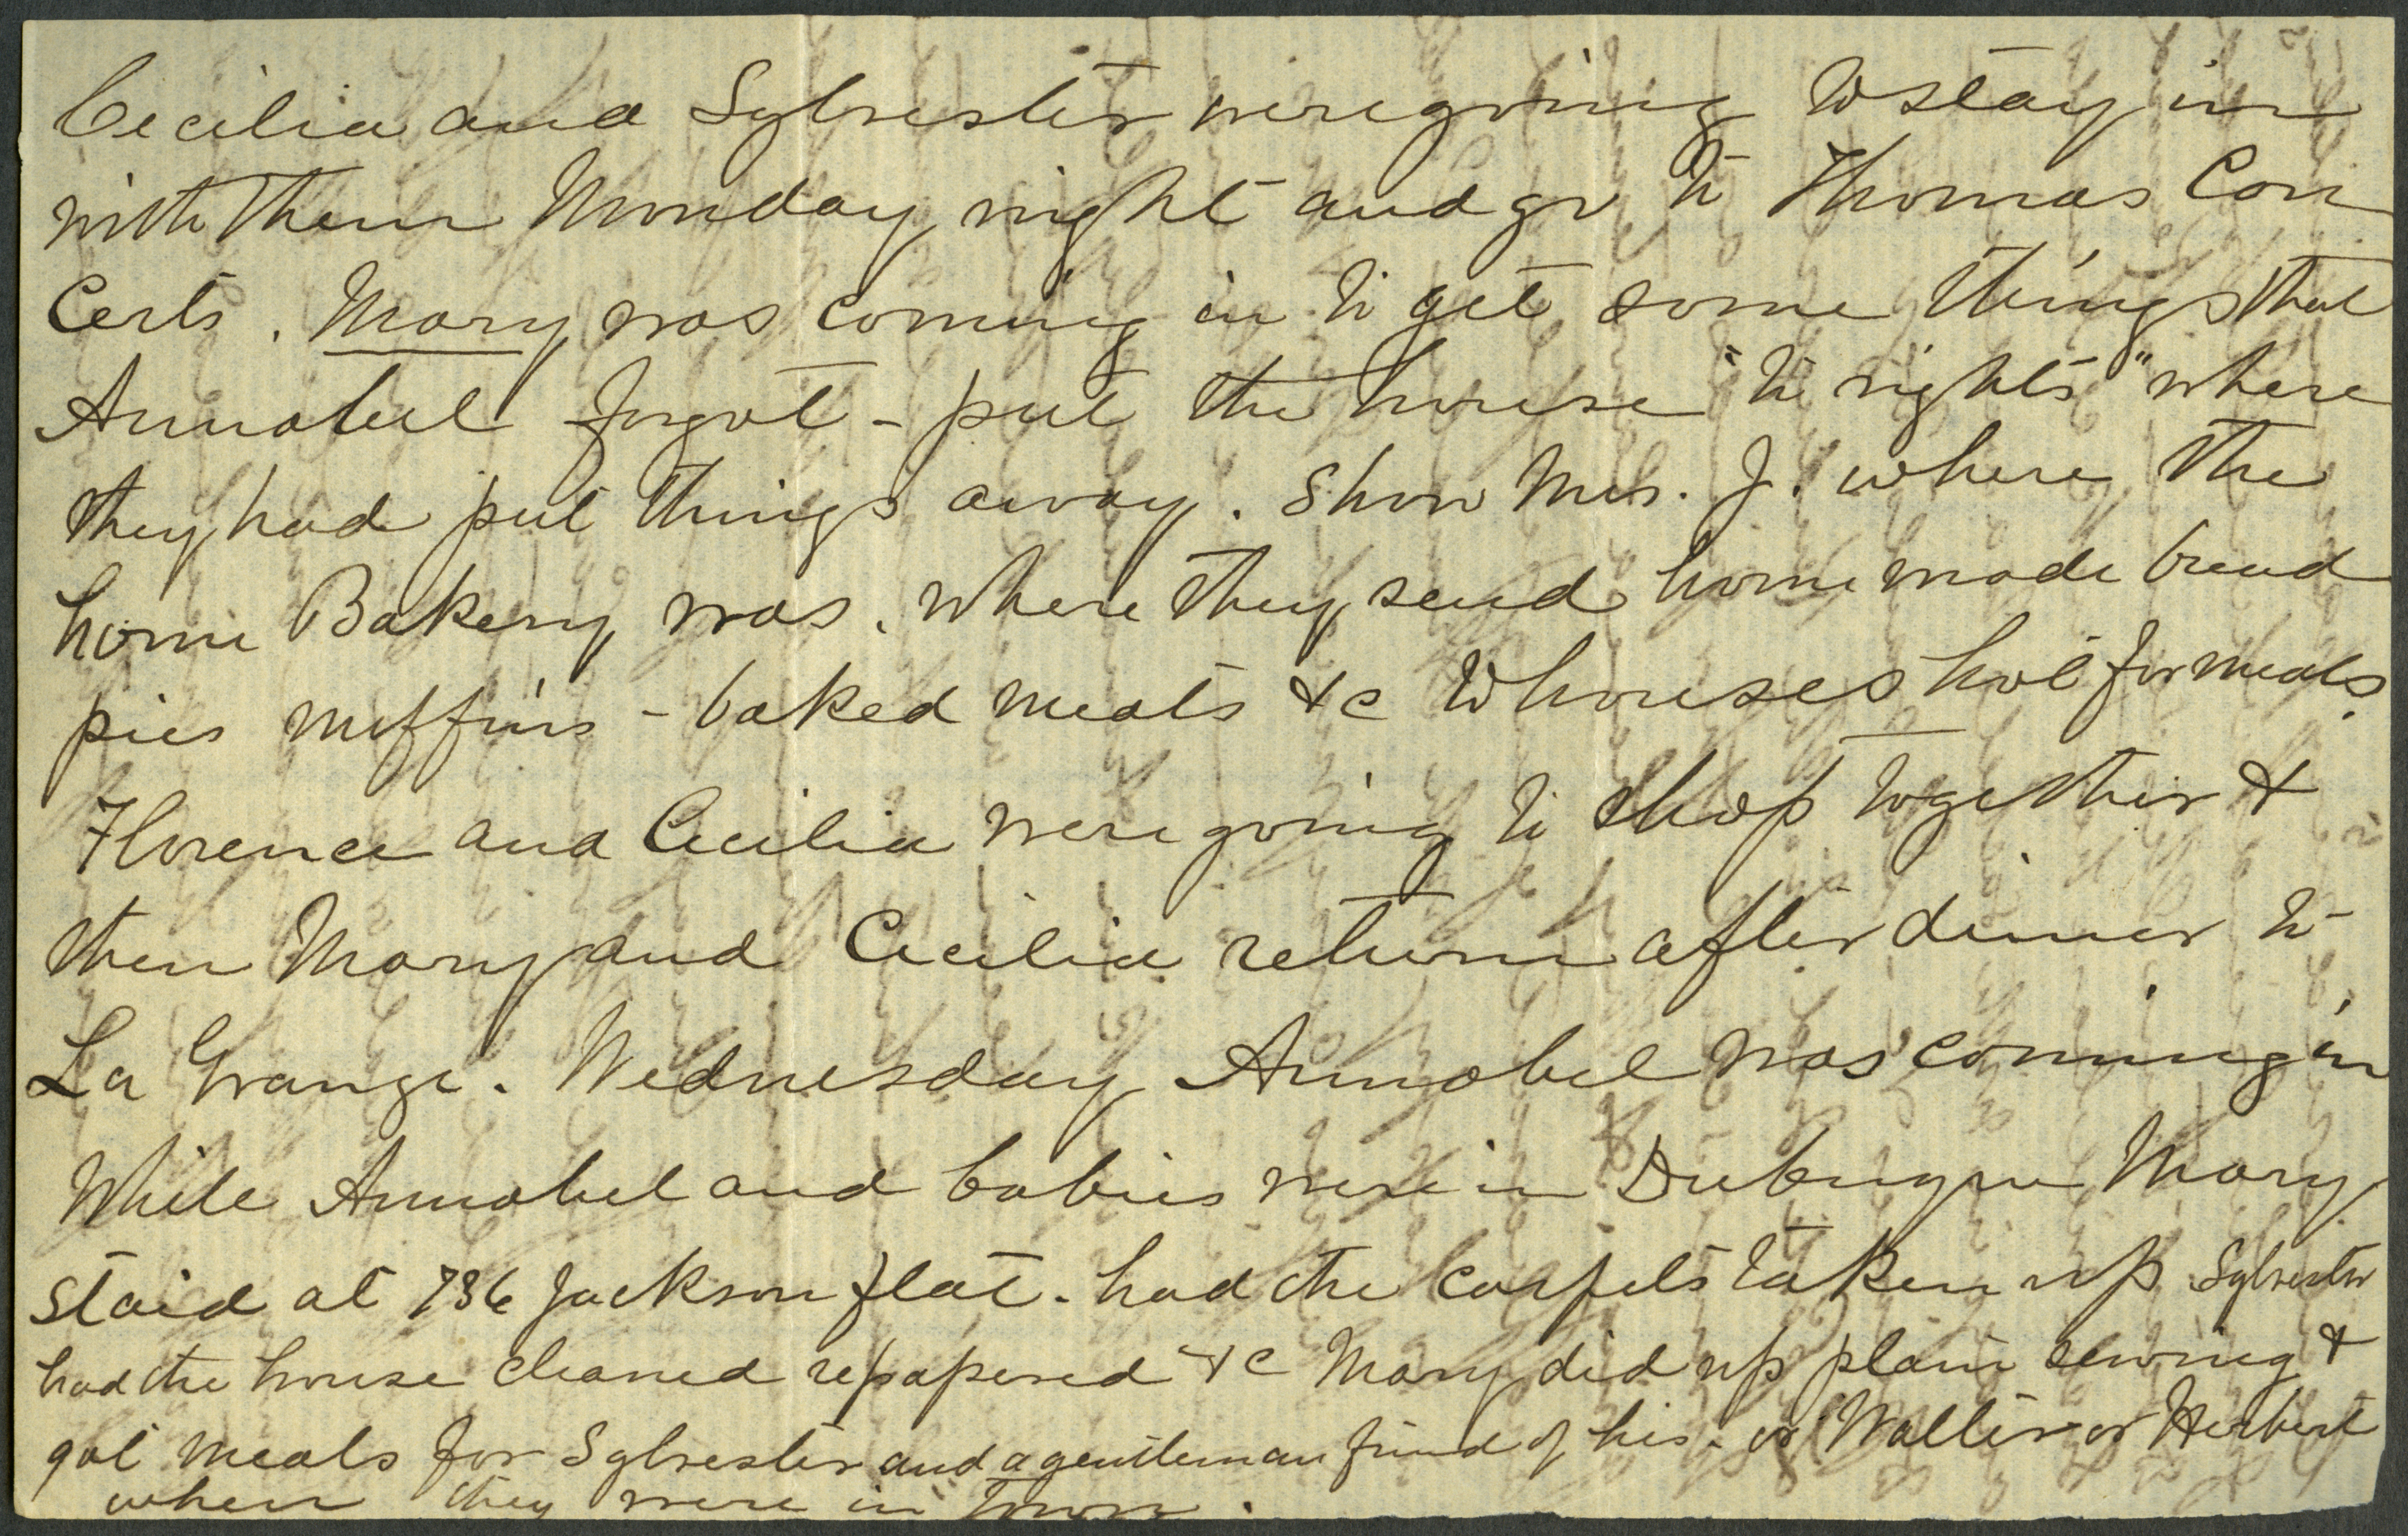 Cecilia and Sylvester were going to stay in
with them Monday night and go to Thomas Con
certs. Mary was coming in to get some things that
Annabel forgot - put the house "to rights" where
they had put things away. Show Mrs. J. where the
home Bakery was. where they send home made bread
pies muffins - baked meats &c to houses hot for meals.
Florence and Cecilia were going to shop together &
then Mary and Cecilia return after dinner to
La Grange. Wednesday Annabel was coming in
While Annabel and babies were in Dubuque Mary
staid at 736 Jackson flat. had the carpets taken up Sylvester
had the house cleaned repapered &c Mary did up plain sewing &
got meals for Sylvester and a gentleman friend of his - or Walter or Herbert
when they were in town.